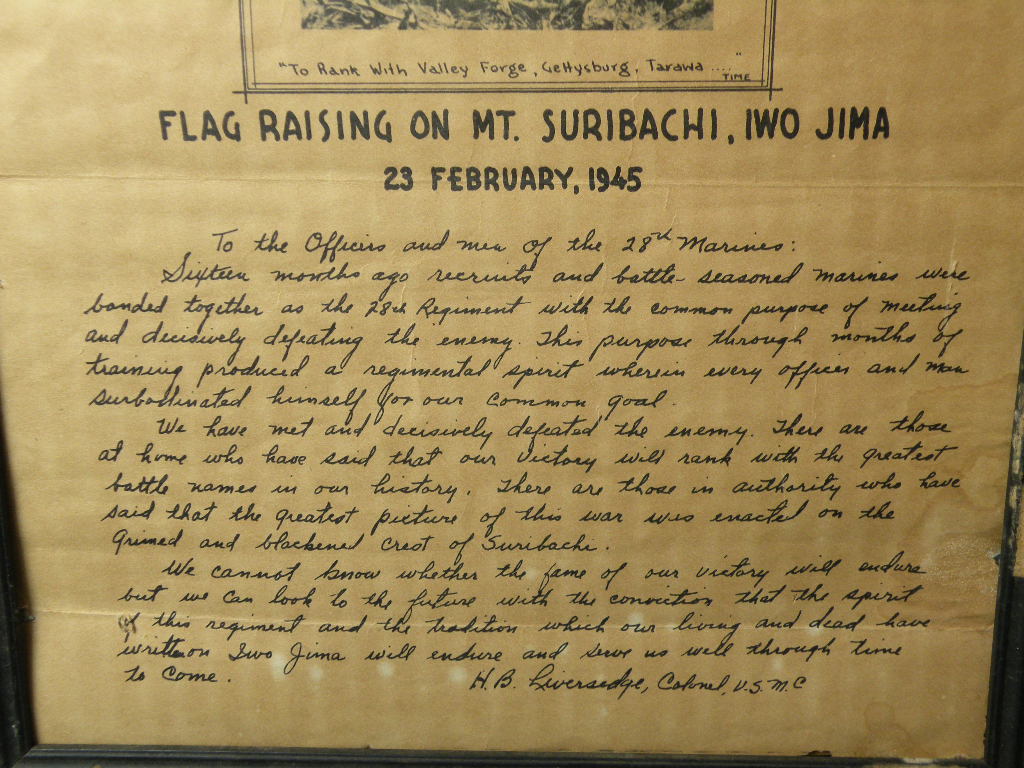 "To Rank With Valley Forge, Gettysburg, Tarawa ...."
TIME
FLAG RAISING ON MT. SURIBACHI, IWO JIMA
23 FEBRUARY, 1945
To the Officers and men of the 28th Marines:
Sixteen months ago recruits and battle-seasoned marines were
banded together as the 28th Regiment with the common purpose of meeting
and decisively defeating the enemy. This purpose through months of
training produced a regimental spirit wherein every officer and man
surbordinated himself for our common goal.
We have met and decisively defeated the enemy. There are those
at home who have said that our victory will rank with the greatest
battle names in our history. There are those in authority who have
said that the greatest picture of this war was enacted on the
grimed and blackened crest of Suribachi.
We cannot know whether the fame of our victory will endure
but we can look to the future with the conviction that the spirit
of this regiment and the tradition which our living and dead have
written on Iwo Jima will endure and serve us well through time
to come.
H. B. Liversedge, Colonel, U.S.M.C